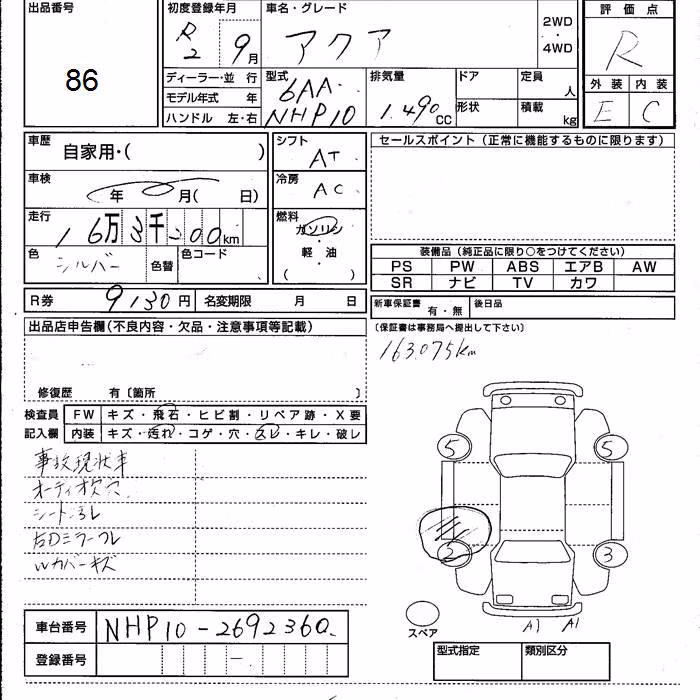 出品番号
86
初度登録年月
R2 9月
車名・グレード
アクア
2WD
・
4WD
評価点
R
外装 内装
E C
ディーラー・並 行
モデル年式 年
ハンドル 左・右
型式
6AA-
NHP10
排気量
1.490 CC
ドア
形状
定員 人
積載 kg
車歴
自家用・( )
車検
年 月( 日)
走行
16万3千 00km
色
シルバー
色替
色コード
シフト
AT
冷房
AC
燃料
ガソリン
・
軽・油
( )
セールスポイント(正常に機能するものに限ります)
装備品(純正品に限り○をつけてください)
PS PW ABS エアB AW
SR ナビ TV カワ
R券 9130円 名変期限 月 日
新車保証書 有・無 後日品
(保証書は事務局へ提出して下さい)
163.075km
出品店申告欄(不良内容・欠品・注意事項等記載)
修復歴 有〔箇所 〕
検査員 FW キズ・飛石・ヒビ割・リペア跡・X要
記入欄 内装 キズ・汚れ・コゲ・穴・スレ・キレ・破レ
事故現状車
オーディオ欠 穴
シート汚レ
右Dミラーワレ
Wカバーキズ
5 5
5 3
A1 A1
スペア
車台番号 NHP10-2692360
登録番号 -
型式指定 類別区分